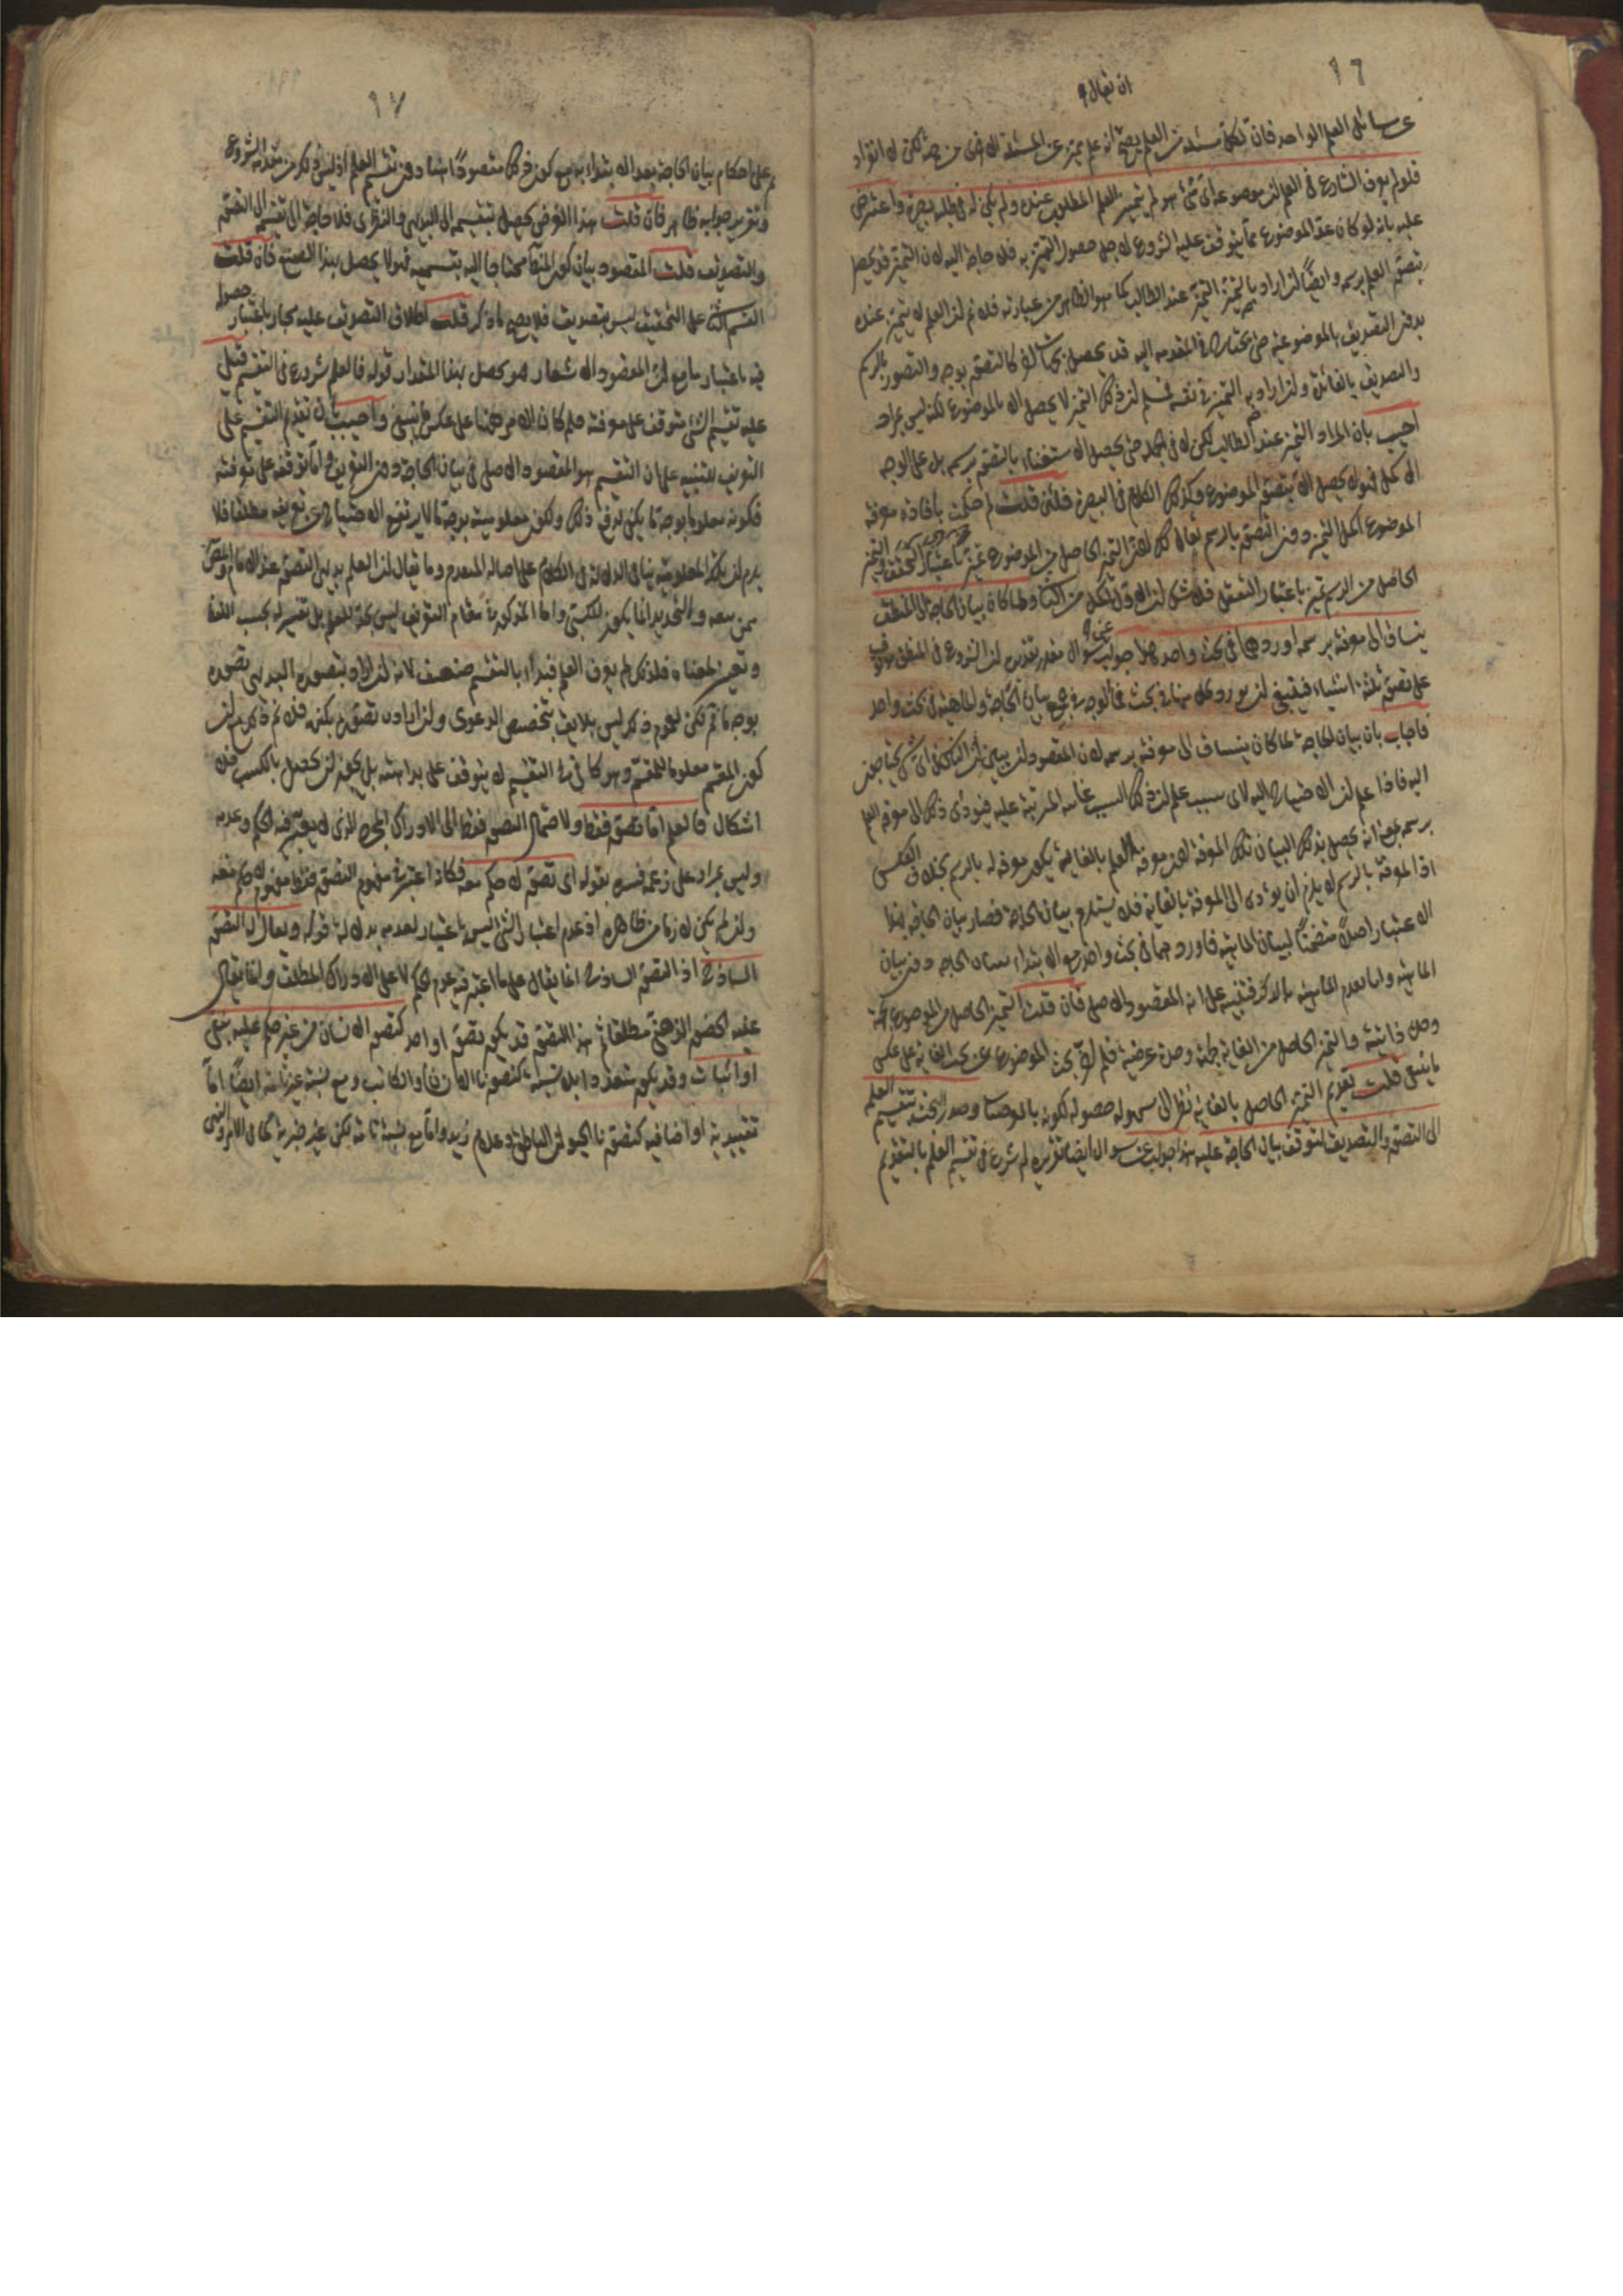 ١٦
ان يقال
عن مسائل العلم الواحد فان لكل مسئلة من العلم يصح انه علم مميز عن المسئلة الاخرى من جهة لكن لا انفراد
فلو لم يعرف الشارع في العلم ان موضوعه اى شئ هو لم يتميز العلم المطلوب عنده ولم يكن له في طلبه بصيرة واعترض
عليه بانه لو كان هذا الموضوع مما يتوقف عليه الشروع لاجل حصول التميز به فلا حاجة اليه لان التميز قد يحصل
بتصور العلم برسمه وايضا ان اراد بالتميز التميز عند الطالب كما هو الظاهر من عبارته فلا نم ان العلم لا يتميز عنده
بدون التصديق بالموضوعية حتى يحتاج في المقدمة اليه قد يحصل كالتصور بوجه والتصور بالرسم
والتصديق بالفائدة وان اراد به التميز في نفسه فمسلم ان ذلك التميز لا يحصل الا بالموضوع لكنه ليس بمراد
اجيب بان المراد التميز عند الطالب لكن لا في الجملة حتى يحصل الاستغناء بالتصور برسمه بل على الوجه
الاكمل فهو لا يحصل الا بتصور الموضوع وكذلك الكلام في البصيرة فلئن قلت لم حكمت بافادة معرفة
الموضوع اكمل التميز دون التصور بالرسم يقال لك لان التميز الحاصل من الموضوع تميز باعتبار التحقق والتميز
الحاصل من الرسم تميز باعتبار التعقل فلا شك ان الاول اكمل من الثاني ولما كان بيان الحاجة الى المنطق
ينساق الى معرفته برسمه اوردهما في بحث واحد هذا جواب عن سؤال مقدر تقديره ان الشروع في المنطق موقوف
على تصور ثلثة اشياء فينبغي ان يورد كل منها في بحث فما الوجه في جمع بيان الحاجة والماهية في بحث واحد
فاجاب بان بيان الحاجة لما كان ينساق الى معرفته برسمه لان المقصود ان يبين ان الناس في اى شئ يحتاجون
اليه فاذا علم ان الاحتياج اليه لاى سبب علم ان ذلك السبب غايته المترتبة عليه فيؤدى ذلك الى معرفة العلم
برسمه بمعنى انه يحصل بذلك البيان تلك المعرفة لان معرفة العلم بالغاية يكون معرفة له بالرسم بخلاف العكس
اذ المعرفة بالرسم لا يلزم ان يؤدى الى المعرفة بالغاية فلا يستلزم بيان الحاجة فصار بيان الحاجة بهذا
الاعتبار اصلا متضمنا لبيان الماهية فاوردهما في بحث واحد صدر الابتداء ببيان الحاجة دون بيان
الماهية واما تقديم الماهية بالذكر فتنبيه على انه المقصود الاصلى فان قلت التميز الحاصل من الموضوع جهة
وحدة ذاتية والتميز الحاصل من الغاية جهة وحدة عرضية فلم اخر بحث الموضوع عن بحث الغاية على عكس
ما ينبغي قلت تقديم التميز الحاصل بالغاية نظرا الى سهولة حصوله لكونه بالعرض وصدر البحث بتقسيم العلم
الى التصور والتصديق لتوقف بيان الحاجة عليه هذا جواب عن سؤال ايضا تقريره لم شرع في تقسيم العلم بالتقديم
١٧
على احكام بيان الحاجة بعد الابتداء به مع كون ذلك مقصودا اصليا دون تقسيم العلم اذ ليس ذلك من مقدمة الشروع
وتقرير جوابه ظاهر فان قلت هذا الغرض يحصل بتقسيمه الى البديهى والنظرى فلا حاجة الى تقسيمه الى التصور
والتصديق قلت المقصود بيان كون المنطق محتاجا اليه بقسميه فهو لا يحصل بهذا التقسيم فان قلت
القسم الثاني على التحقيق ليس بتصديق فلا يصح ما ذكر قلت اطلاق التصديق عليه مجاز باعتبار حصول
فيه باعتبار ما مع ان المقصود الاشعار هو يحصل بهذا المقدار قوله فالعلم شروع في التقسيم قيل
عليه تقسيم الشئ متوقف على معرفته فلم كان الامر ههنا على عكس ما ينبغي واجيب بان تقديم التقسيم على
التعريف للتنبيه على ان التقسيم هو المقصود الاصلى في بيان الحاجة دون التعريف واما توقفه على معرفته
فكونه معلوما بوجه ما يكفي لدفع ذلك ولكون معلوميته بوجه ما لا يرتفع الاحتياج عن تعريفه مطلقا فلا
يلزم ان تكون المعلومية ينافى الدلالة في الكلام على اصالة المتقدم وما يقال ان العلم بديهى التصور عند الامام
فمن يمنعه والتحديد انما يكون للكسبي واما المذكور في مقام التعريف ليس بحد للعلم بل تفسير له بحسب اللغة
وتعيين لمعناه فلذلك لم يعرف العلم فبدأ بالتقسيم ضعيف لانه ان اراد بتصوره البديهى تصوره
بوجه ما تم لكن العموم ذكر ليس بلايق بتخصيص الدعوى وان اراد تصوره بكنهه فلا نم ذلك ان
كون المقسم معلوما للمقسم وهو كاف في التقسيم لا يتوقف على بداهته بل يجوز ان يحصل بالكسب فلا
اشكال فالعلم اما تصور فقط ولاحتمال التصور فقط الى الادراك المجرد الذى لا يعتبر فيه الحكم وعدمه
وليس بمراد على زعمه فسره بقوله اى تصور لا حكم معه فكانه اعتبر في مفهوم التصور فقط مفهوم لا حكم معه
وان لم يكن لازما من ظاهره اذ عدم اعتبار الشئ ليس باعتبار لعدمه بدلالة قوله ويقال له التصور
الساذج اذ التصور الساذج انما يقال على ما اعتبر فيه عدم الحكم لا على الادراك المطلق وانما يقال
عليه الحضور الذهنى مطلقا ثم هذا التصور قد يكون تصور واحد كتصور الانسان من غير حكم عليه بنفى
او اثبات وقد يكون متعددا بلا نسبة كتصور الانسان والكاتب ومع نسبة غير تامة ايضا اما
تقييدية او اضافية كتصور الحيوان الناطق وغلام زيد واما مع نسبة تامة لكن غير خبرية كما في الامر والنهى